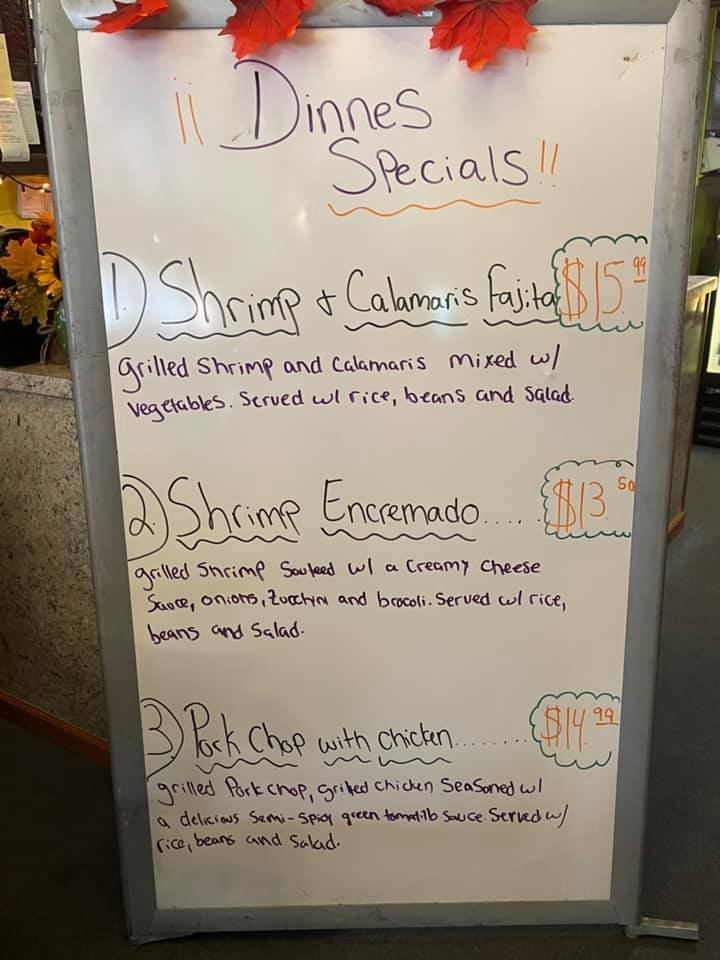 ¡¡ Dinnes
Specials!!
1.) Shrimp & Calamaris Fajita $15.99
grilled Shrimp and Calamaris mixed w/
vegetables. Served w/ rice, beans and salad.
2.) Shrimp Encremado..... $13.50
grilled Shrimp Souteed w/ a creamy cheese
Sauce, onions, Zucchini and brocoli. Served w/ rice,
beans and Salad.
3.) Pork Chop with chicken........ $14.99
grilled Pork chop, grilled chicken Seasoned w/
a delicious Semi-Spicy green tomatillo Sauce. Served w/
rice, beans and Salad.